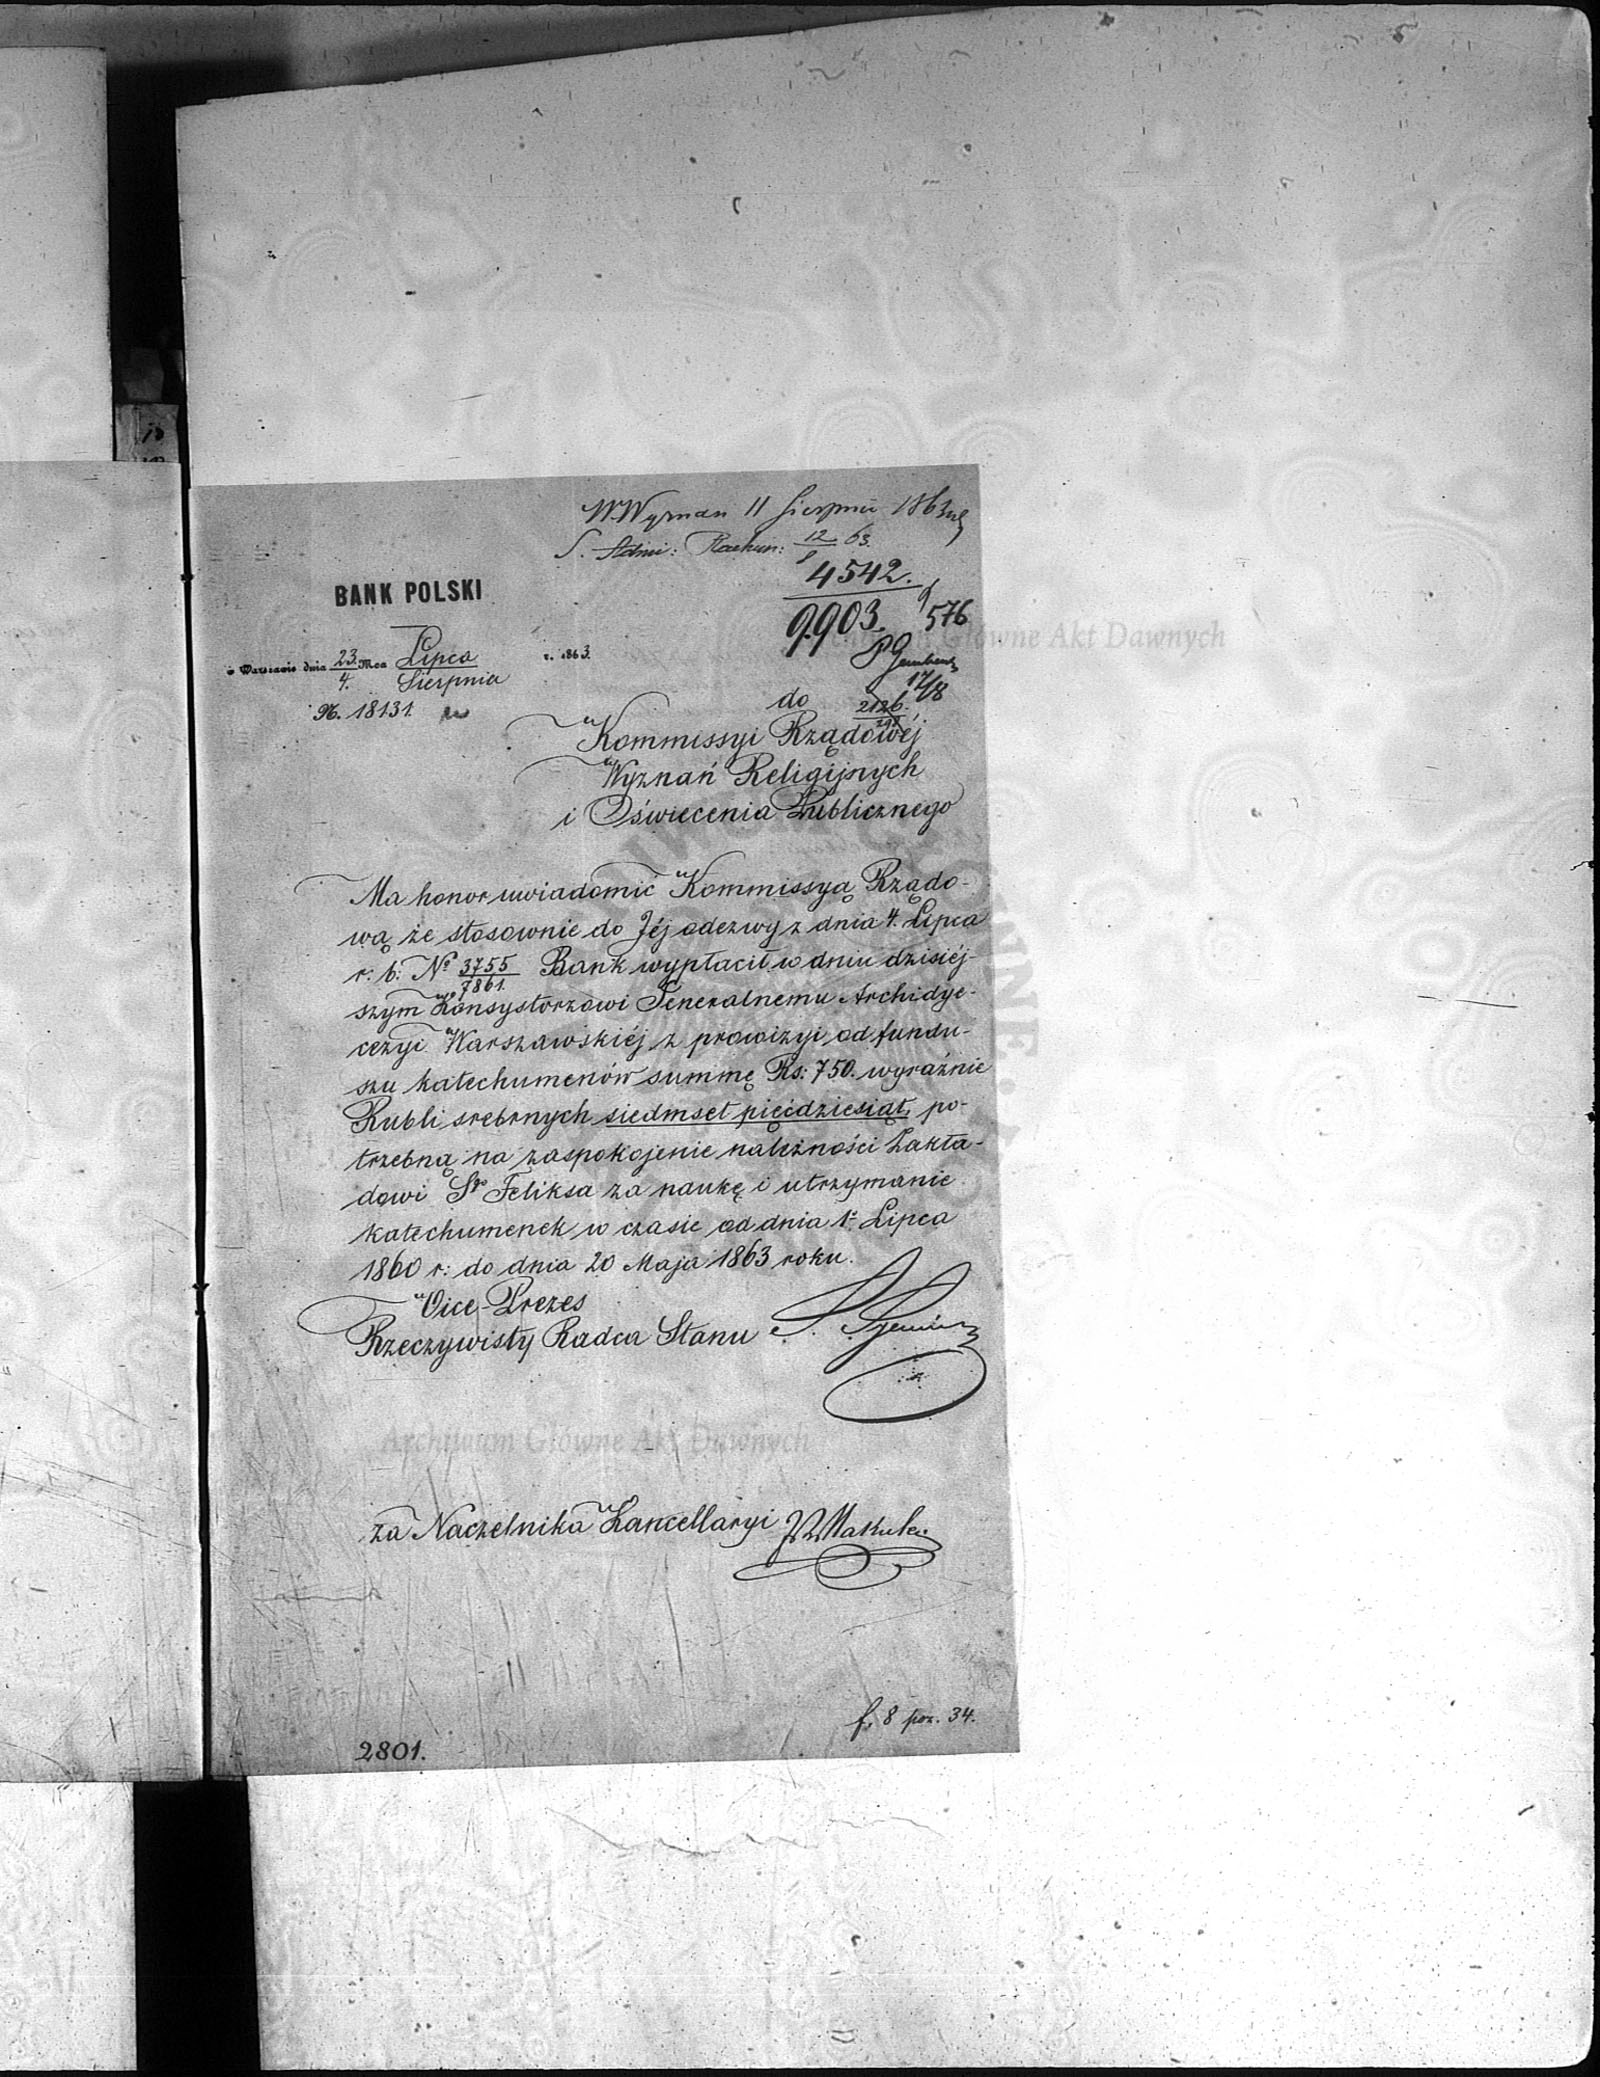 W Wyznań 11 Sierpnia 1863
S. Admi: Rachun: 12/8 63.
4542.
9903. 576
BANK POLSKI
w Warszawie dnia 23/4. Mca Lipca/Sierpnia r. 1863.
17/8
№. 18131.
do 2126.
Kommissyi Rządowéj
Wyznań Religijnych
i Oświecenia Publicznego
Ma honor uwiadomić Kommissyą Rządo-
wą że stosownie do Jéj odezwy z dnia 4. Lipca
r: b: No 3755/7861. Bank wypłacił w dniu dzisiéj-
szym Konsystorzowi Generalnemu Archidye-
cezyi Warszawskiéj z prowizyi od fundu-
szu katechumenów summę Rs: 750. wyraźnie
Rubli srebrnych siedmset pięćdziesiąt, po-
trzebną na zaspokojenie należności Zakła-
dowi Sgo Feliksa za naukę i utrzymanie
katechumenek w czasie od dnia 1o Lipca
1860 r: do dnia 20 Maja 1863 roku.
Vice-Prezes
Rzeczywisty Radca Stanu
Archiwum Główne Akt Dawnych
za Naczelnika Kancellaryi
f. 8 poz. 34.
2801.
Główne Akt Dawnych